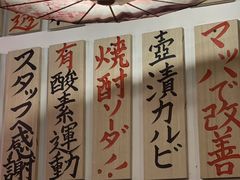 マッハで改善
壺漬カルビ
焼酎ソーダ
有酸素運動
スタッフへ感謝